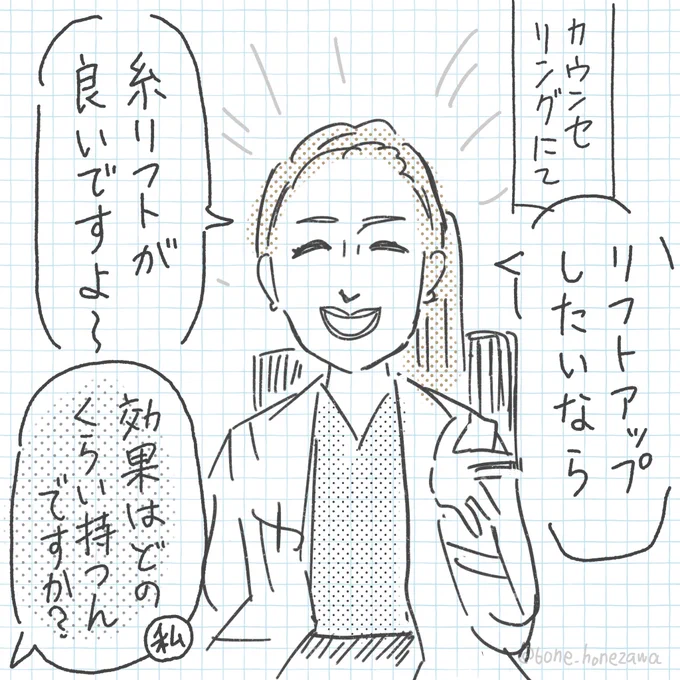 カウンセ
リングにて
リフトアップ
したいなら
糸リフトが
良いですよ〜
効果はどの
くらい持つん
ですか?
私
@bone_honezawa